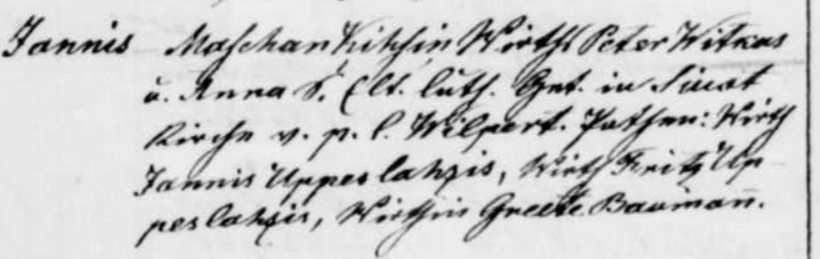 Jannis Maschan Kihsin Wirths Peter Witkus
u. Anna S. Elt. luth. Get. in Siuxt
Kirche v. p. l. Wilpert. Pathen: Wirth
Jannis Uppeslahzis, Wirth Fritz Up
peslahzis, Wirthin Greete Baumañ.